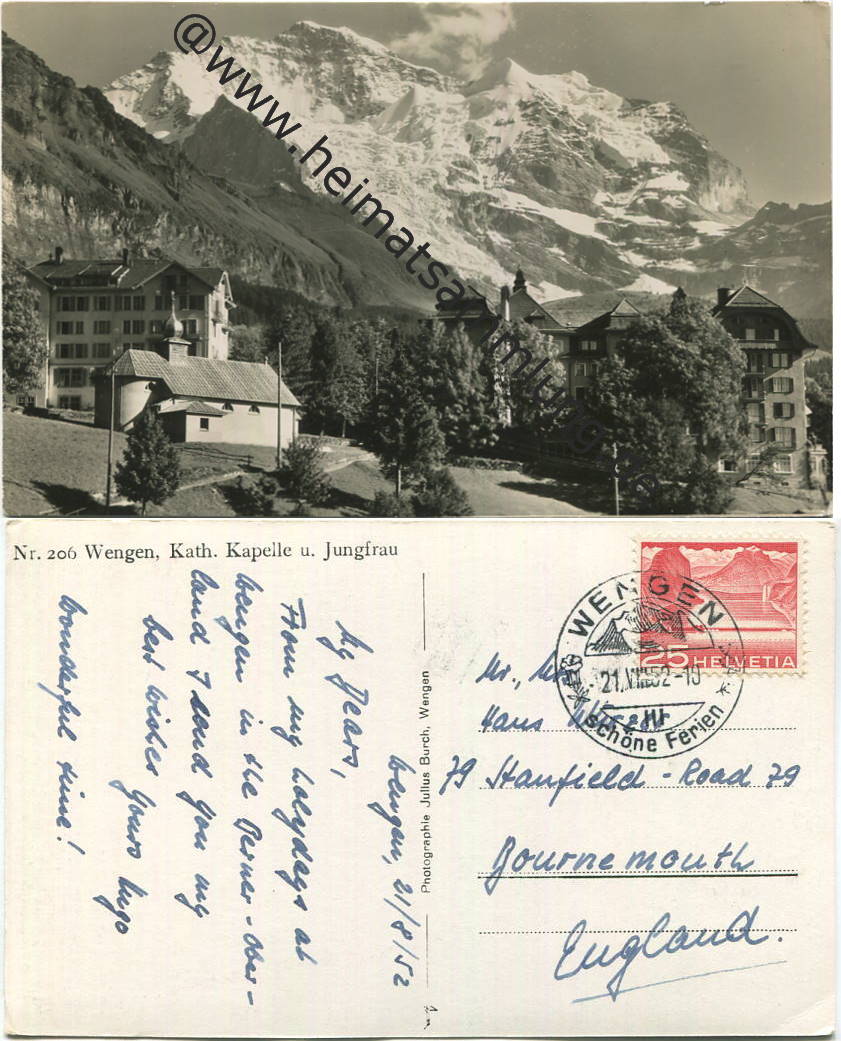 @www.heimatsammlung.de
Nr. 206 Wengen, Kath. Kapelle u. Jungfrau
Wengen, 21/8/52
My Dears,
From my holydays at
Wengen in the Berner-Ober-
land I send you my
best wishes Yours Hugo
Wonderful time!
Photographie Julius Burch, Wengen
25 HELVETIA
WENGEN
21.VIII.52-19
III
schöne Ferien
Mr.,
Hans
79 Stanfield-Road 79
Bournemouth
England.